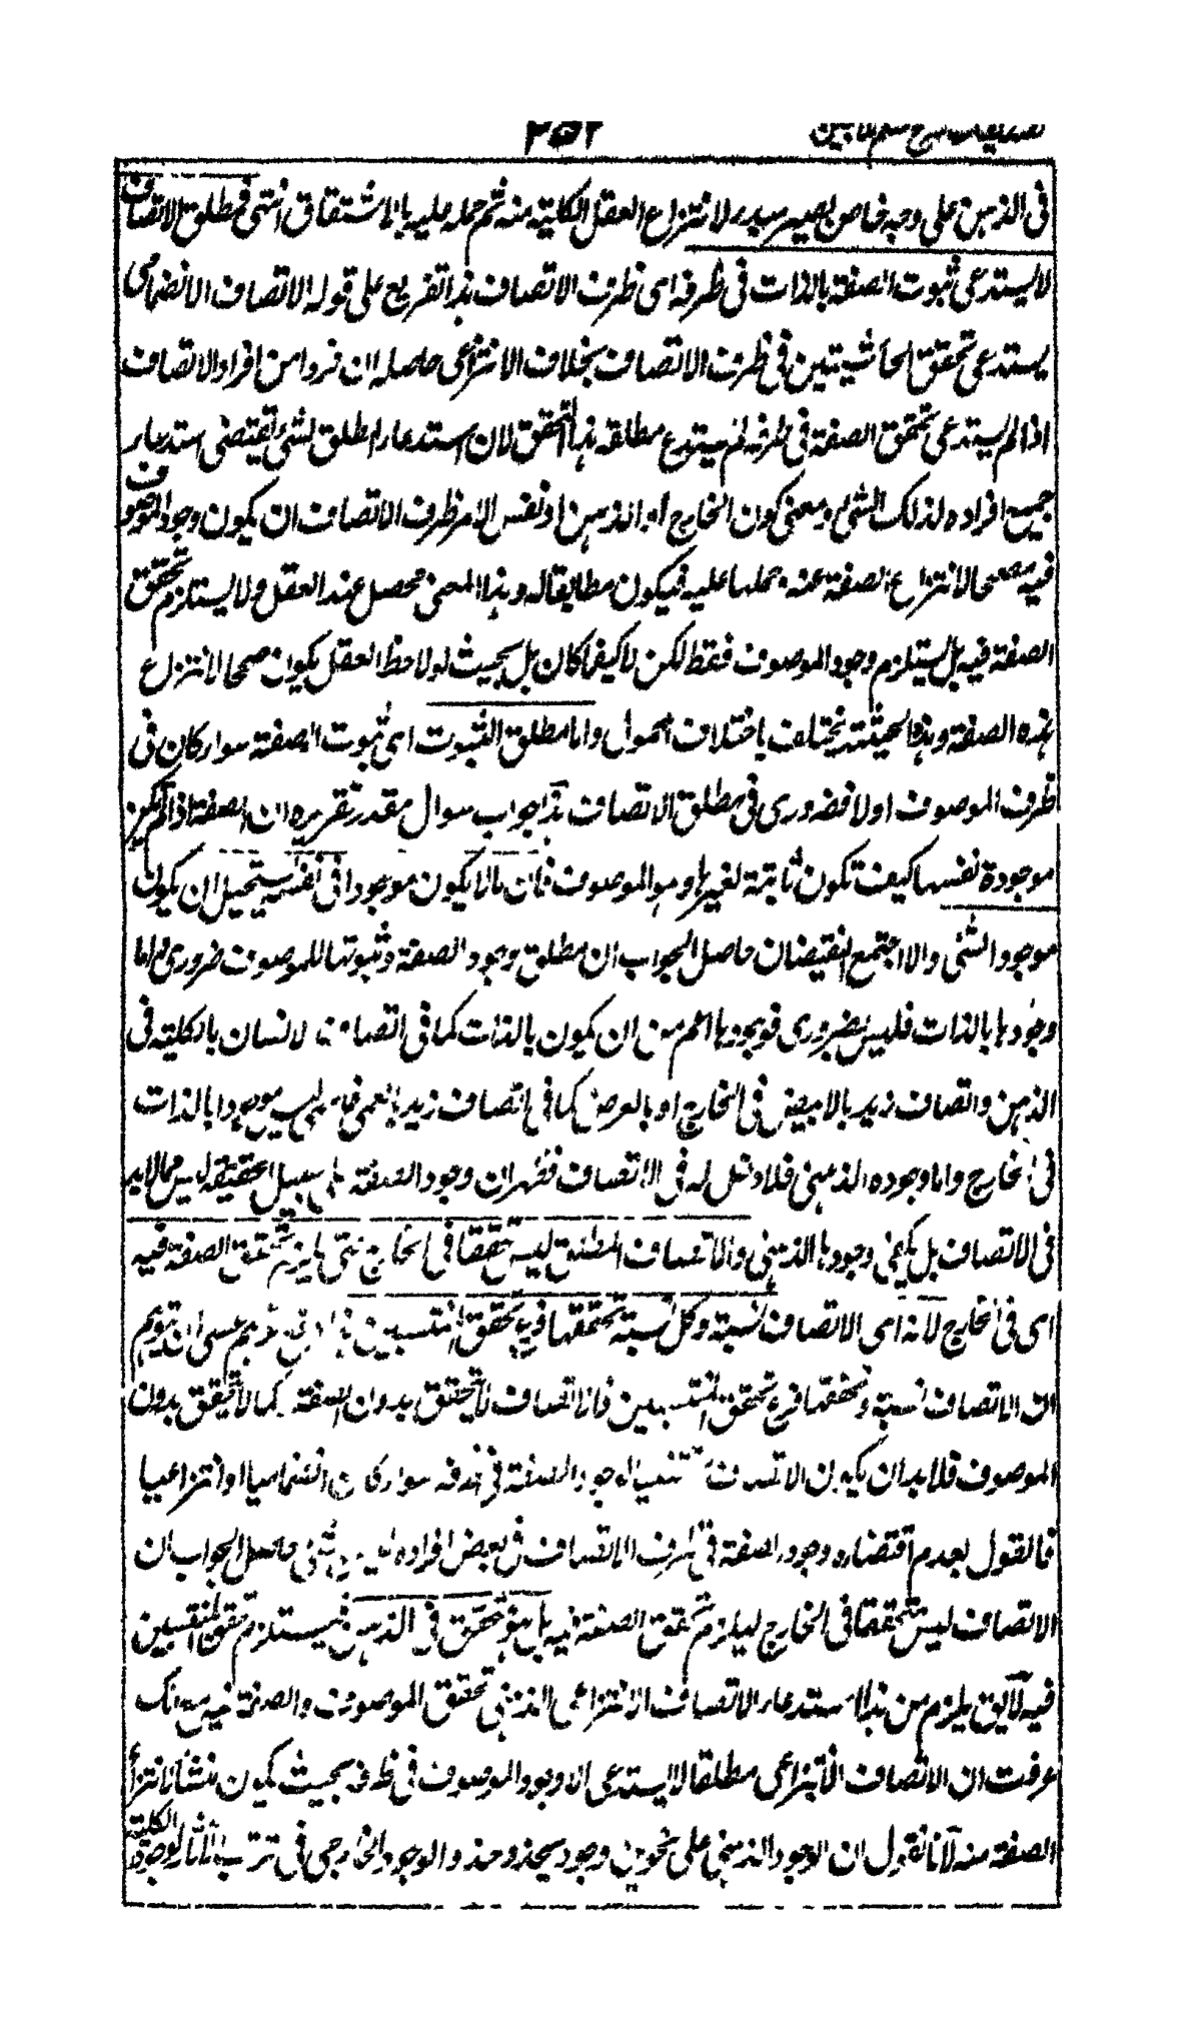 تصدیقات شرح سلم ملا مبین
٢٥٢
فی الذہن علی وجہ خاص یصیر مبدء لانتزاع العقل الکلیۃ منہ ثم حملہ علیہ بالاشتقاق انتہی فمطلق الاتصاف
لا یستدعی ثبوت الصفۃ بالذات فی ظرفہ ای ظرف الاتصاف ہذا تفریع علی قولہ الاتصاف الانضمامی
یستدعی تحقق الحاشیتین فی ظرف الاتصاف بخلاف الانتزاعی حاصلہ ان فردا من افراد الاتصاف
اذا لم یستدعی تحقق الصفۃ فی ظرفہ لم یستدع مطلقہ ہذا التحقق لان استدعاء المطلق لشئ یقتضی استدعاء
جمیع افرادہ لذلک الشئ ومعنی کون الخارج او الذہن او نفس الامر ظرف الاتصاف ان یکون وجود الموصوف
فیہ مصححا لانتزاع الصفۃ عنہ وحملہا علیہ فیکون مطابقا لہ وہذا المعنی محصل عند العقل ولا یستلزم تحقق
الصفۃ فیہ بل یستلزم وجود الموصوف فقط لکن لا کیفما کان بل بحیث لو لاحظ العقل یکون صحا لانتزاع
ہذہ الصفۃ وہذہ الحیثیۃ یختلف باختلاف المحمول واما مطلق الثبوت ای ثبوت الصفۃ سواء کان فی
ظرف الموصوف اولا فضروری فی مطلق الاتصاف ہذا جواب سوال مقدر تقریرہ ان الصفۃ اذا لم تکن
موجودۃ نفسہا کیف تکون ثابتۃ لغیرہا وہو الموصوف فان مالا یکون موجودا فی نفسہ یستحیل ان یکون
موجود الشئ والا اجتمع النقیضان حاصل الجواب ان مطلق وجود الصفۃ وثبوتہا للموصوف ضروری واما
وجودہا بالذات فلیس بضروری فوجودہا اعم من ان یکون بالذات کما فی اتصاف الانسان بالکلیۃ فی
الذہن واتصاف زید بالابیض فی الخارج او بالعرض کما فی اتصاف زید بالعمی فانہ لیس موجودا بالذات
فی الخارج واما وجودہ الذہنی فلا دخل لہ فی الاتصاف فظہر ان وجود الصفۃ علی سبیل الحقیقۃ لیس مما لابد
فی الاتصاف بل یکفی وجودہا الذہنی والاتصاف المطلق لیس تحققا فی الخارج حتی یلزم تحقق الصفۃ فیہ
ای فی الخارج لانہ ای الاتصاف نسبۃ وکل نسبۃ تحققہا فرع تحقق المنتسبین ہذا دفع توہم عسی ان یتوہم
ان الاتصاف نسبۃ وتحققہا فرع تحقق المنتسبین فالاتصاف لا یتحقق بدون الصفۃ کما لا یتحقق بدون
الموصوف فلابد ان یکون الاتصاف مقتضیا لوجود الصفۃ فی ظرفہ سواء کان انضمامیا او انتزاعیا
فالقول بعدم اقتضاءہ وجود الصفۃ فی ظرف الاتصاف فی بعض افرادہ لیس بشئ حاصل الجواب ان
الاتصاف لیس متحققا فی الخارج لیلزم تحقق الصفۃ فیہ بل ہو متحقق فی الذہن فیستلزم تحقق المنتسبین
فیہ لا یق یلزم من ہذا استدعاء الاتصاف الانتزاعی الذہنی تحقق الموصوف والصفۃ فیہ مع انک
عرفت ان الاتصاف الانتزاعی مطلقا لا یستدعی الا وجود الموصوف فی ظرفہ بحیث یکون منشأ لانتزاع
الصفۃ منہ لانا نقول ان الوجود الذہنی علی نحوین وجود یحذو حذو الوجود الخارجی فی ترتب الاثار لوجود الکلیۃ